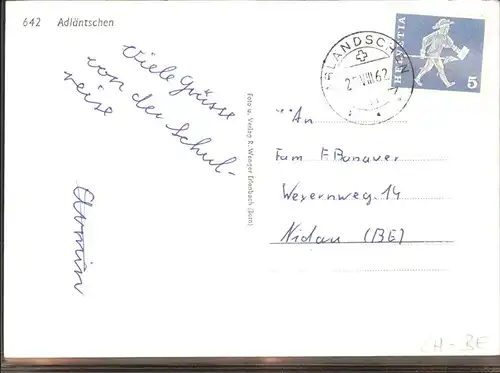 642 Adläntschen
Viele Grüsse
von der Schul-
reise
Armin
Foto u. Verlag R. Wenger Erlenbach (Bern)
HELVETIA
5
VIII 62
An
Fam F. Bonauer
Weyernweg 14
Nidau (BE)
CH-BE